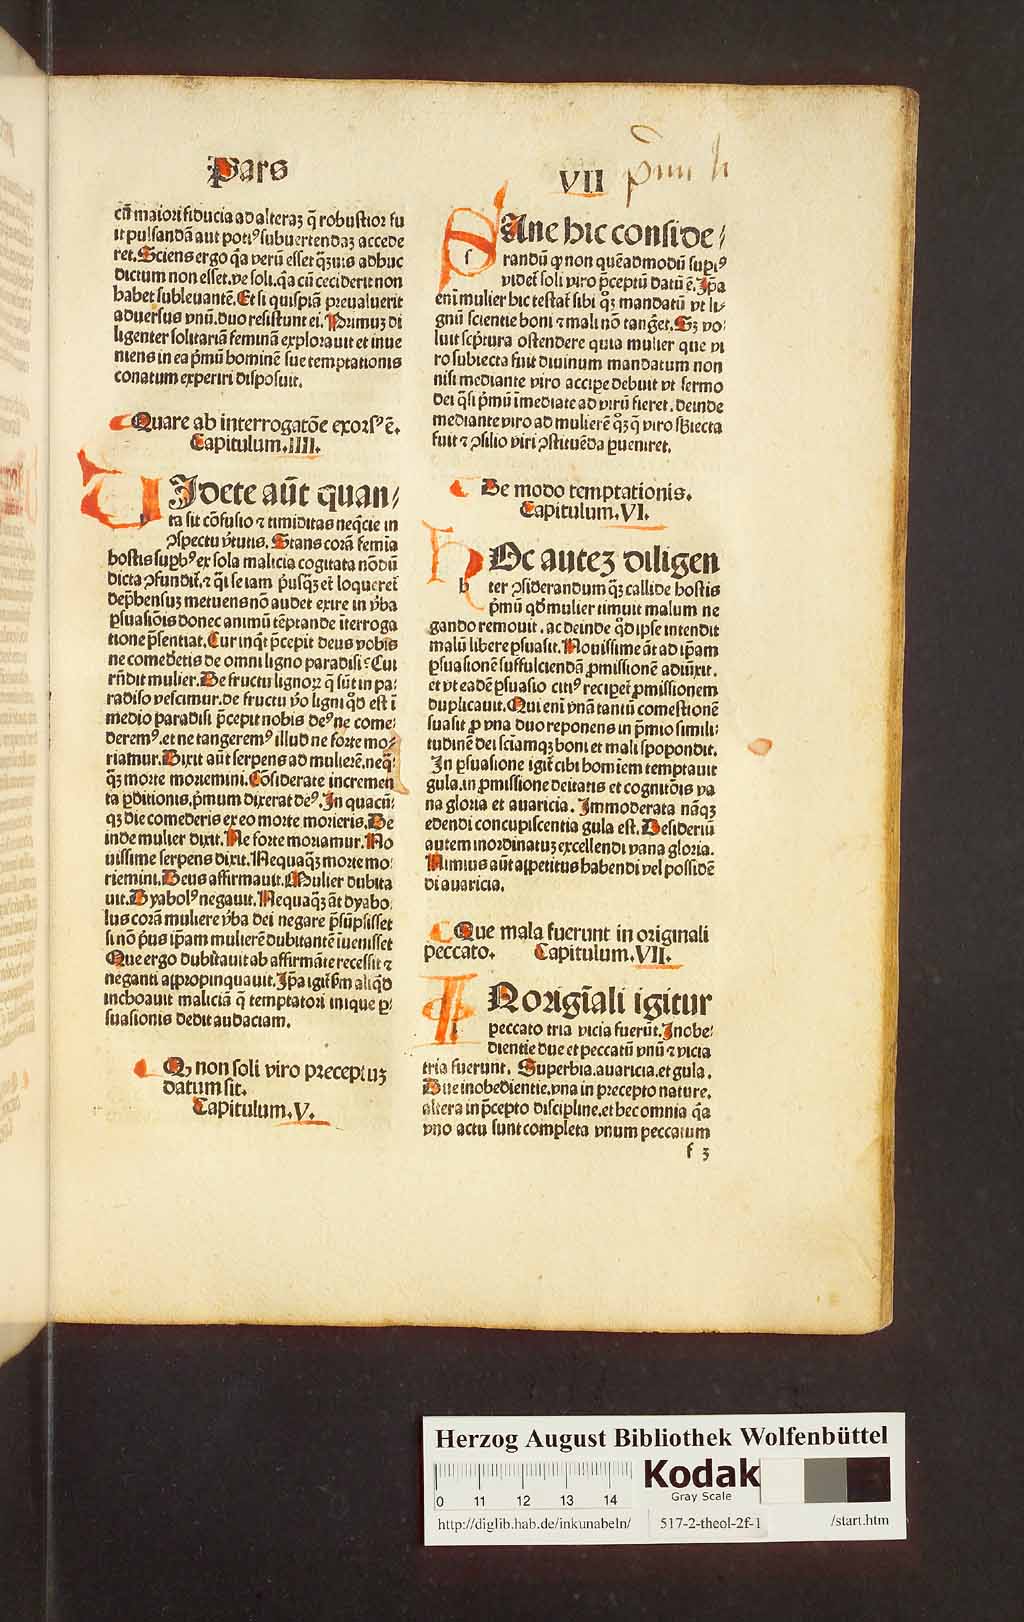 Pars
VII
cū maiori fiducia ad alteraȝ q̄ robustior fu
it pulsandā aut potiꝰ subuertendaȝ accede
ret. Sciens ergo q̄a verū esset qȝuis adhuc
dictum non esset. ve soli. q̄a cū ceciderit non
habet subleuantē. Et si quispiā preualuerit
aduersus vnū. duo resistunt ei. Primuȝ di
ligenter solitariā feminā explorauit et inue
niens in ea p̄mū hominē sue temptationis
conatum experiri disposuit.
Quare ab interrogatōe exorsꝰ ē.
Capitulum. IIII.
VIdete aūt quan/
ta sit cōfusio ⁊ timiditas neq̄cie in
ꝯspectu v̄tutis. Stans corā femīa
hostis supbꝰ ex sola malicia cogitata nōdū
dicta ꝯfundit̄. ⁊ qui se iam p̄usqȝ et loqueret̄
dep̄hensuȝ metuens nō audet exire in v̄ba
ꝑsuasiōis donec animū tēptande īterroga
tione p̄sentiat. Cur inqt̄ p̄cepit deus vobis
ne comedetis de omni ligno paradisi? Cui
rn̄dit mulier. De fructu lignoꝝ q̄ sūt in pa:
radiso vescimur. de fructu v̄o ligni qd̄ est ī
medio paradisi p̄cepit nobis deꝰ ne come:
deremꝰ. et ne tangeremꝰ illud ne forte mo/
riamur. Dixit aūt serpens ad mulierē. neq̄/
qȝ morte moriemini. Cōsiderate incremen
ta ꝑditionis. p̄mum dixerat deꝰ. In quacū:
qȝ die comederis ex eo morte morieris. De
inde mulier dixit. Ne forte moriamur. No
uissime serpens dixit. Nequaqȝ morte mo:
riemini. Deus affirmauit. Mulier dubita
uit. Dyabolꝰ negauit. Nequaqȝ āt dyabo
lus corā muliere v̄ba dei negare p̄sūpsisset
si nō p̄us ip̄am mulierē dubitantē īuenisset
Que ergo dubitauit ab affirmāte recessit ⁊
neganti appropinquauit. Ip̄a igit̄ fm aliqd̄
inchoauit maliciā q̄ temptatori inique ꝑ:
suasionis dedit audaciam.
Q, non soli viro preceptuȝ
datum sit.
Capitulum. V.
SAne hic conside/
randū ꝙ non quēadmodū supiꝰ
videt̄ soli viro p̄ceptū datū ē. Ip̄a
enī mulier hic testat̄ sibi qȝ mandatū vt li/
gnū scientie boni ⁊ mali nō tanḡet. Sȝ vo:
luit scp̄tura ostendere quia mulier que vi
ro subiecta fuit diuinum mandatum non
nisi mediante viro accipe debuit vt sermo
dei q̄si p̄mū īmediate ad virū fieret. deinde
mediante viro ad mulierē qȝ q̄ viro sb̄iecta
fuit ⁊ ꝯsilio viri ꝯstituēda ꝑueniret.
De modo temptationis.
Capitulum. VI.
HOc auteȝ diligen
ter ꝯsiderandum qȝ callide hostis
p̄mū qd̄ mulier timuit malum ne
gando remouit. ac deinde qd̄ ipse intendit
malū libere ꝑsuasit. Nouissime āt ad ip̄am
ꝑsuasionē suffulciendā ꝓmissionē adiūxit.
et vt eadē ꝑsuasio citiꝰ recipet̄ ꝓmissionem
duplicauit. Qui enī vnā tantū comestionē
suasit ꝓ vna duo reponens in p̄mio simili:
tudinē dei sciāmqȝ boni et mali spopondit.
In ꝑsuasione igit̄ cibi homīem temptauit
gula. in ꝓmissione deitatis et cognitōis va
na gloria et auaricia. Immoderata nāqȝ
edendi concupiscentia gula est. Desideriū
autem inordinatuȝ excellendi vana gloria.
Nimius aūt appetitus habendi vel possidē
di auaricia.
Que mala fuerunt in originali
peccato. Capitulum. VII.
INorigīali igitur
peccato tria vicia fuerūt. Inobe:
dientie due et peccatū vnū ⁊ vicia
tria fuerunt. Superbia. auaricia. et gula.
Due inobedientie. vna in precepto nature.
altera in p̄cepto discipline. et hec omnia q̄a
vno actu sunt completa vnum peccatum
f 3
Herzog August Bibliothek Wolfenbüttel
0 11 12 13 14
Kodak
Gray Scale
http://diglib.hab.de/inkunabeln/ 517-2-theol-2f-1 /start.htm